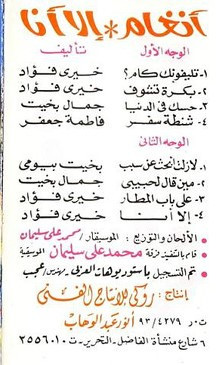 أنغام * إلا أنا
الوجه الأول تأليف
١- تليفونك كام؟ خيرى فؤاد
٢- بكرة تشوف خيرى فؤاد
٣- حبك فى الدنيا جمال بخيت
٤- شنطة سفر فاطمة جعفر
الوجه الثانى
١- لازلت أبحث عن سبب بخيت بيومى
٢- مين قال لحبيبى جمال بخيت
٣- على باب المطار خيرى فؤاد
٤- إلا أنا خيرى فؤاد
الألحان والتوزيع : الموسيقار / محمد على سليمان
قام بالتنفيذ فرقة محمد على سليمان الموسيقية
تم التسجيل باستوديوهات
إنتاج : روكى للإنتاج الفنى
ت . د / ٩٣/٤٢٧٩ أنور عبد الوهاب
٦ شارع منشأة الفاضل . التحرير . ت : ٣٥٥٦٠١٠